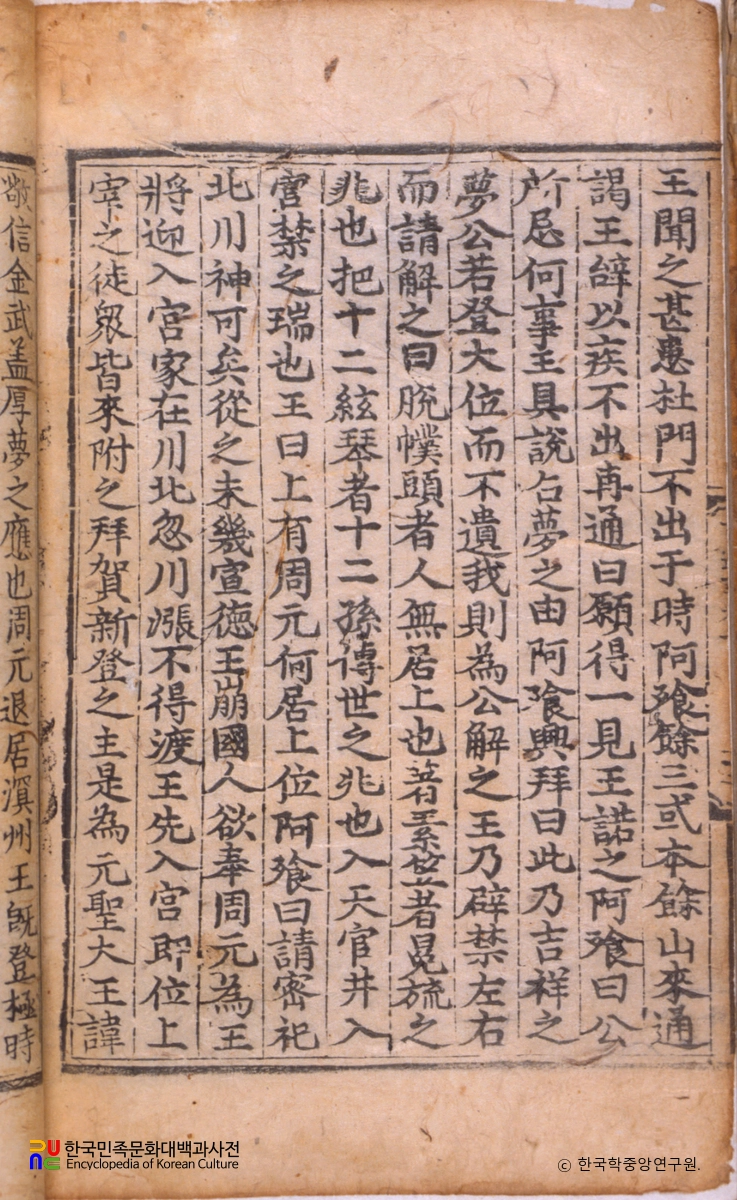 王聞之甚患杜門不出于時阿飡餘三或本餘山來通
謁王辭以疾不出再通曰願得一見王諾之阿飡曰公
所忌何事王具說占夢之由阿飡興拜曰此乃吉祥之
夢公若登大位而不遺我則為公解之王乃辟禁左右
而請解之曰脫幞頭者人無居上也著素笠者冕旒之
兆也把十二絃琴者十二孫傳世之兆也入天官井入
宮禁之瑞也王曰上有周元何居上位阿飡曰請密祀
北川神可矣從之未幾宣徳王崩國人欲奉周元為王
將迎入宮家在川北忽川漲不得渡王先入宮即位上
宰之徒衆皆來附之拜賀新登之主是為元聖大王諱
敬信金武盖厚夢之應也周元退居溟州王旣登極時
한국민족문화대백과사전
Encyclopedia of Korean Culture
© 한국학중앙연구원.